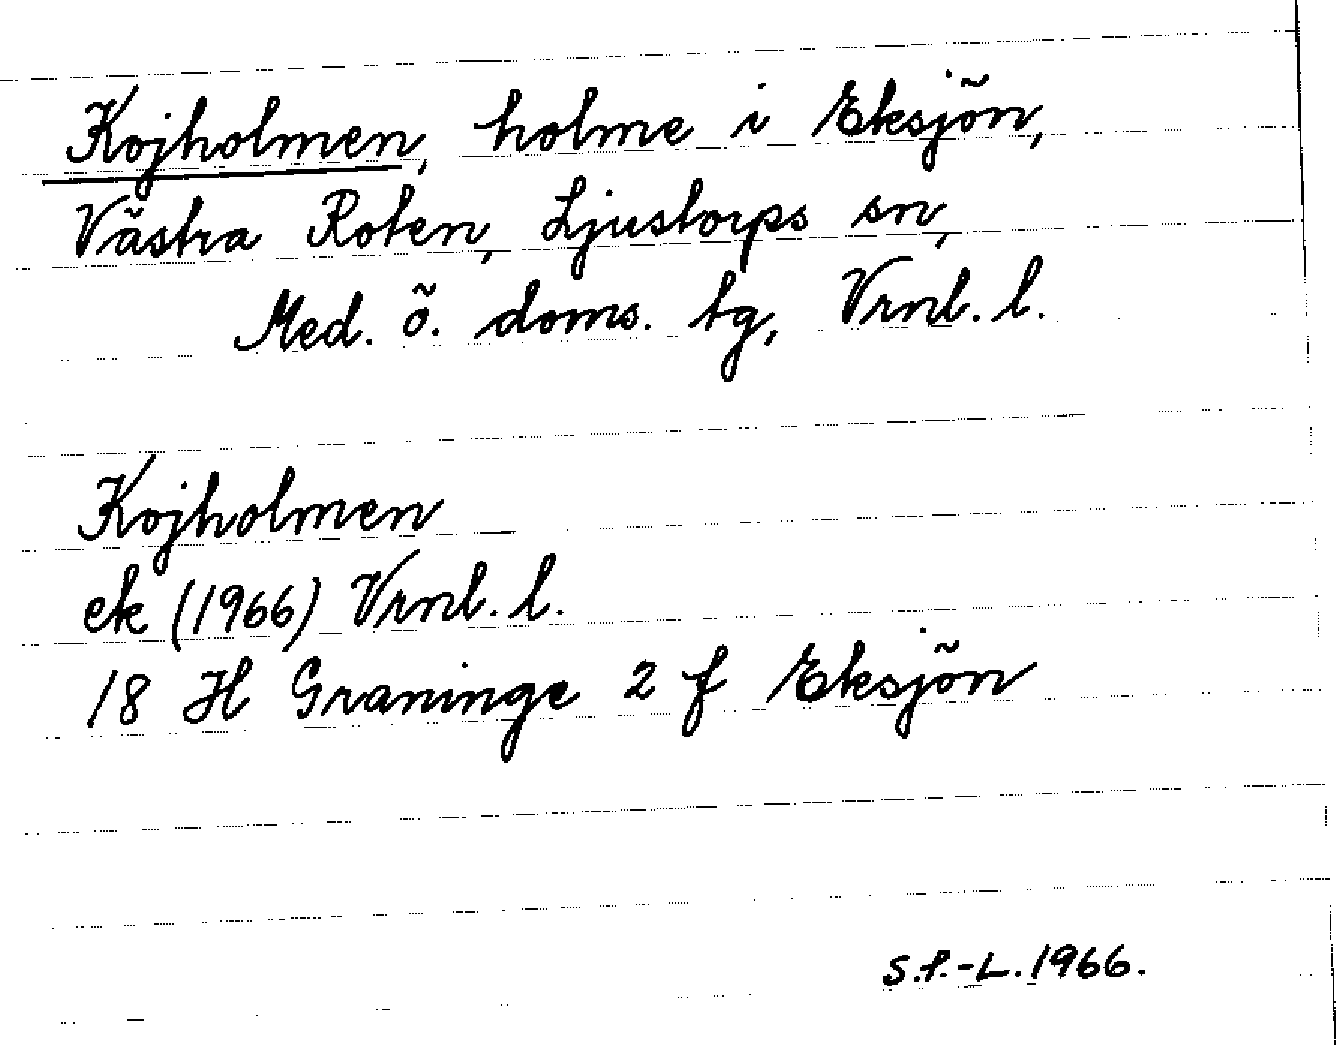 Kojholmen, holme i Eksjön,
Västra Roten, Ljustorps sn,
Med. ö. doms. tg, Vrnl. l.
Kojholmen
ek (1966) Vrnl. l.
18 H Graninge 2 f Eksjön
S.P.-L. 1966.